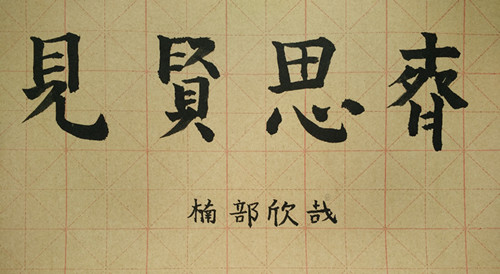 見賢思齊
楠部欣哉